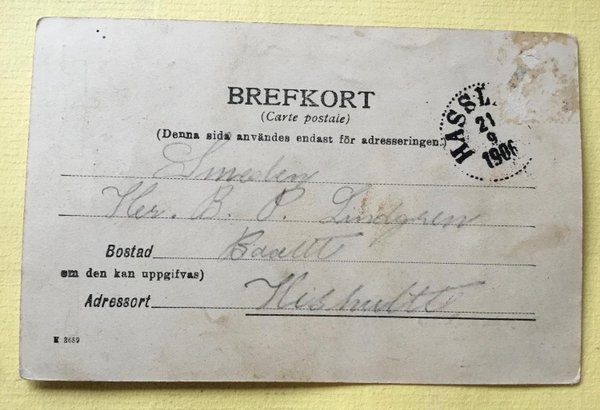 BREFKORT
(Carte postale)
(Denna sida användes endast för adresseringen.)
HASSL
21
9
1906
Smeden
Her. B. P. Lindgren
Bostad
om den kan uppgifvas)
Adressort Hishult
K 2689